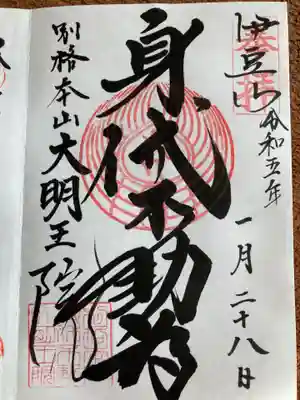 伊豆山
令和五年
一月二十八日
身代不動尊
別格本山大明王院
奉拝